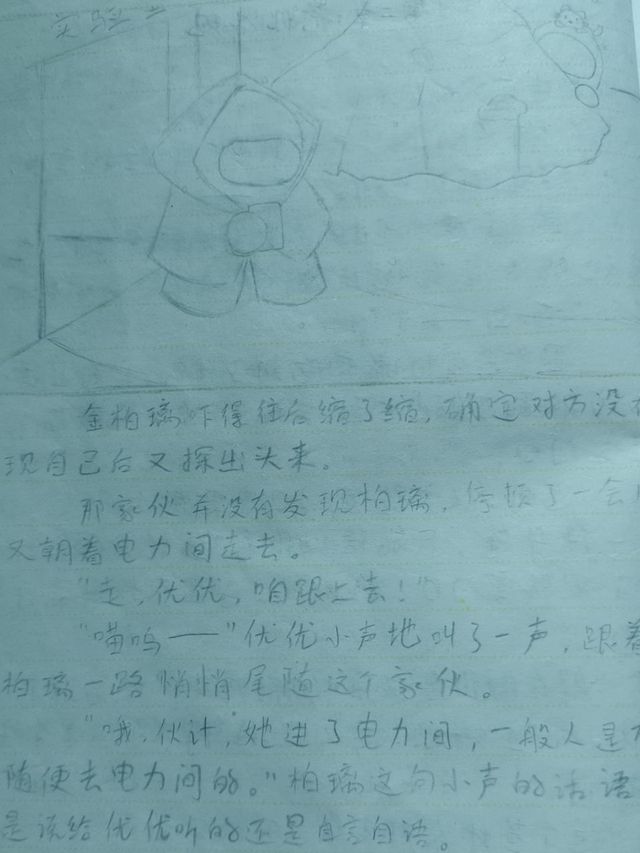 实验
金柏璃吓得往后缩了缩，确定对方没
现自己后又探出头来。
那家伙并没有发现柏璃，停顿了一会
又朝着电力间走去。
“走，优优，咱跟上去！”
“喵呜——”优优小声地叫了一声，跟着
柏璃一路悄悄尾随这个家伙。
“哦，伙计，她进了电力间，一般人是
随便去电力间的。”柏璃这句小声的话语
是说给优优听的还是自言自语。